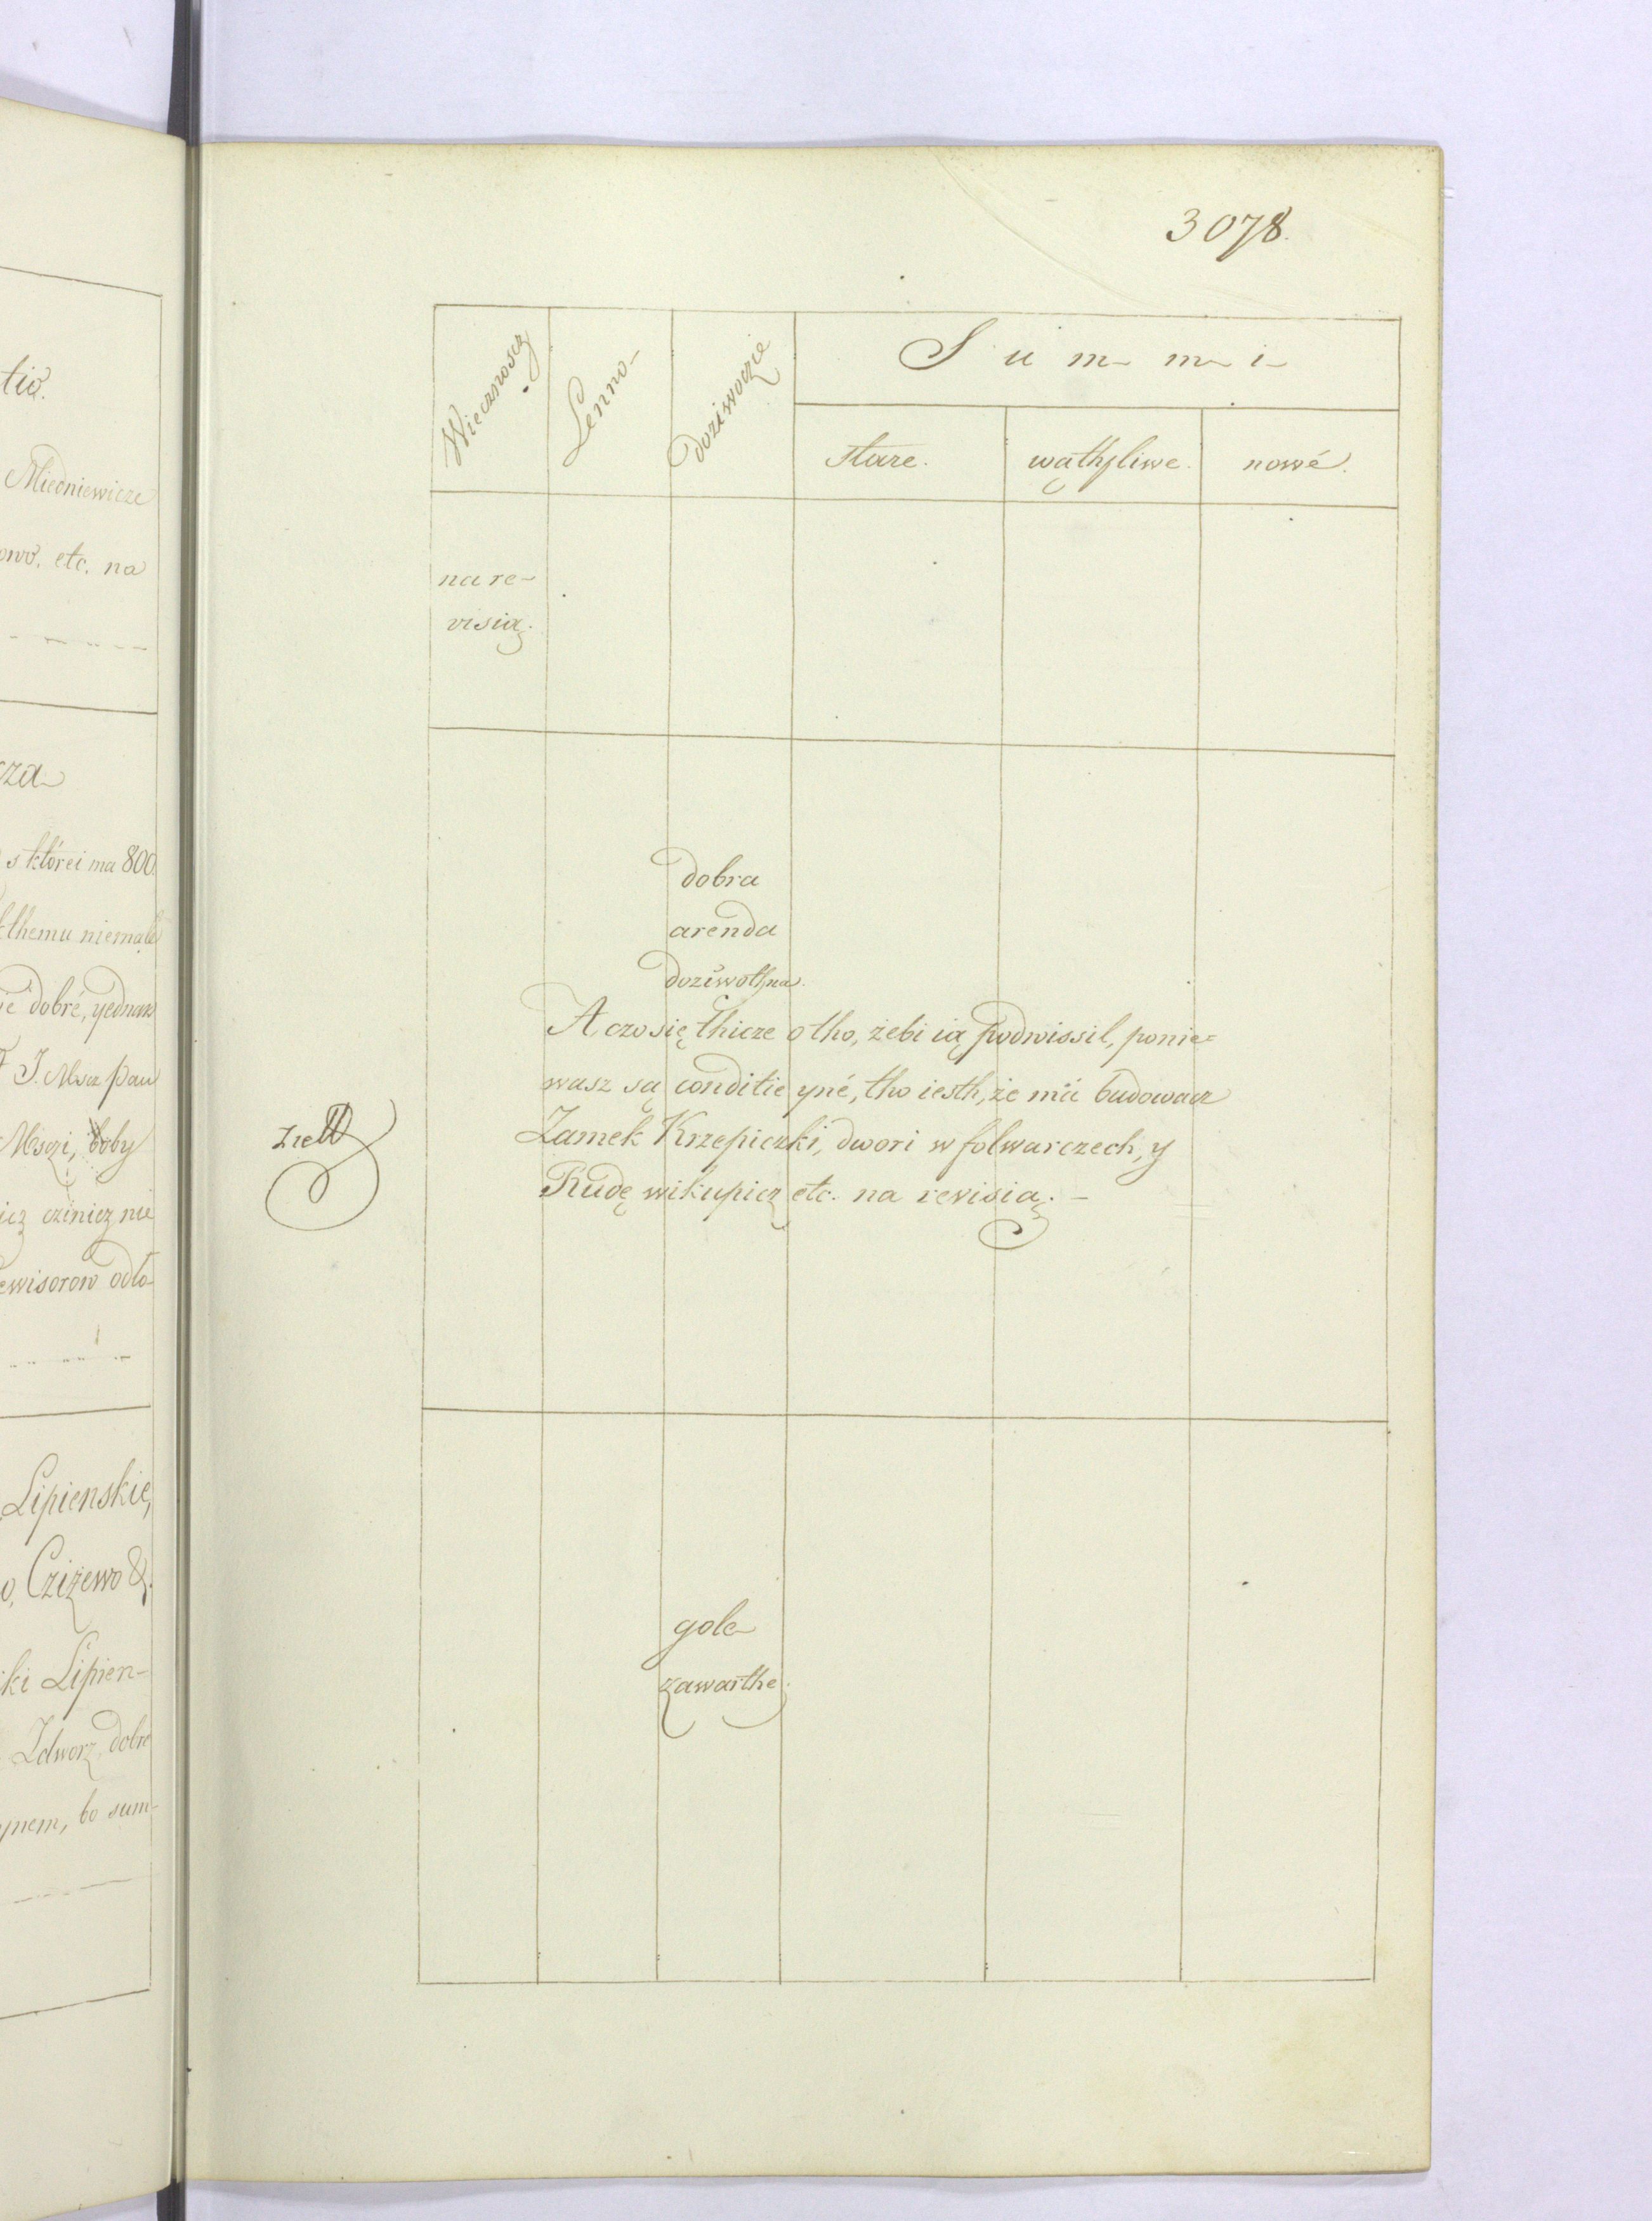 tio.
Miedniewicze
owo. etc. na
cza
s którei ma 800.
kthemu niemałe
ie dobré, yednak
J. Mscz pan
Msczi, boby
icz czinicz nie
ewisorow odło-
Lipienskie,
o, Cziżewo &.
ki Lipien-
Zdworz, dobre
ynem, bo sum-
3078.
Wiecznoscz
Lenno
doziwoczie
Summi
stare.
wąthpliwe.
nowé.
na re-
visią.
dobra
arenda
doziwothna.
A czo się thicze o tho, żebi ią podwissil, ponie=
wasz są conditie yné, tho iesth, że mii budowacz
Zamek Krzepiczki, dwori w folwarczech, y
Rudę wikupicz etc. na revisią. -
gole
zawarthe.